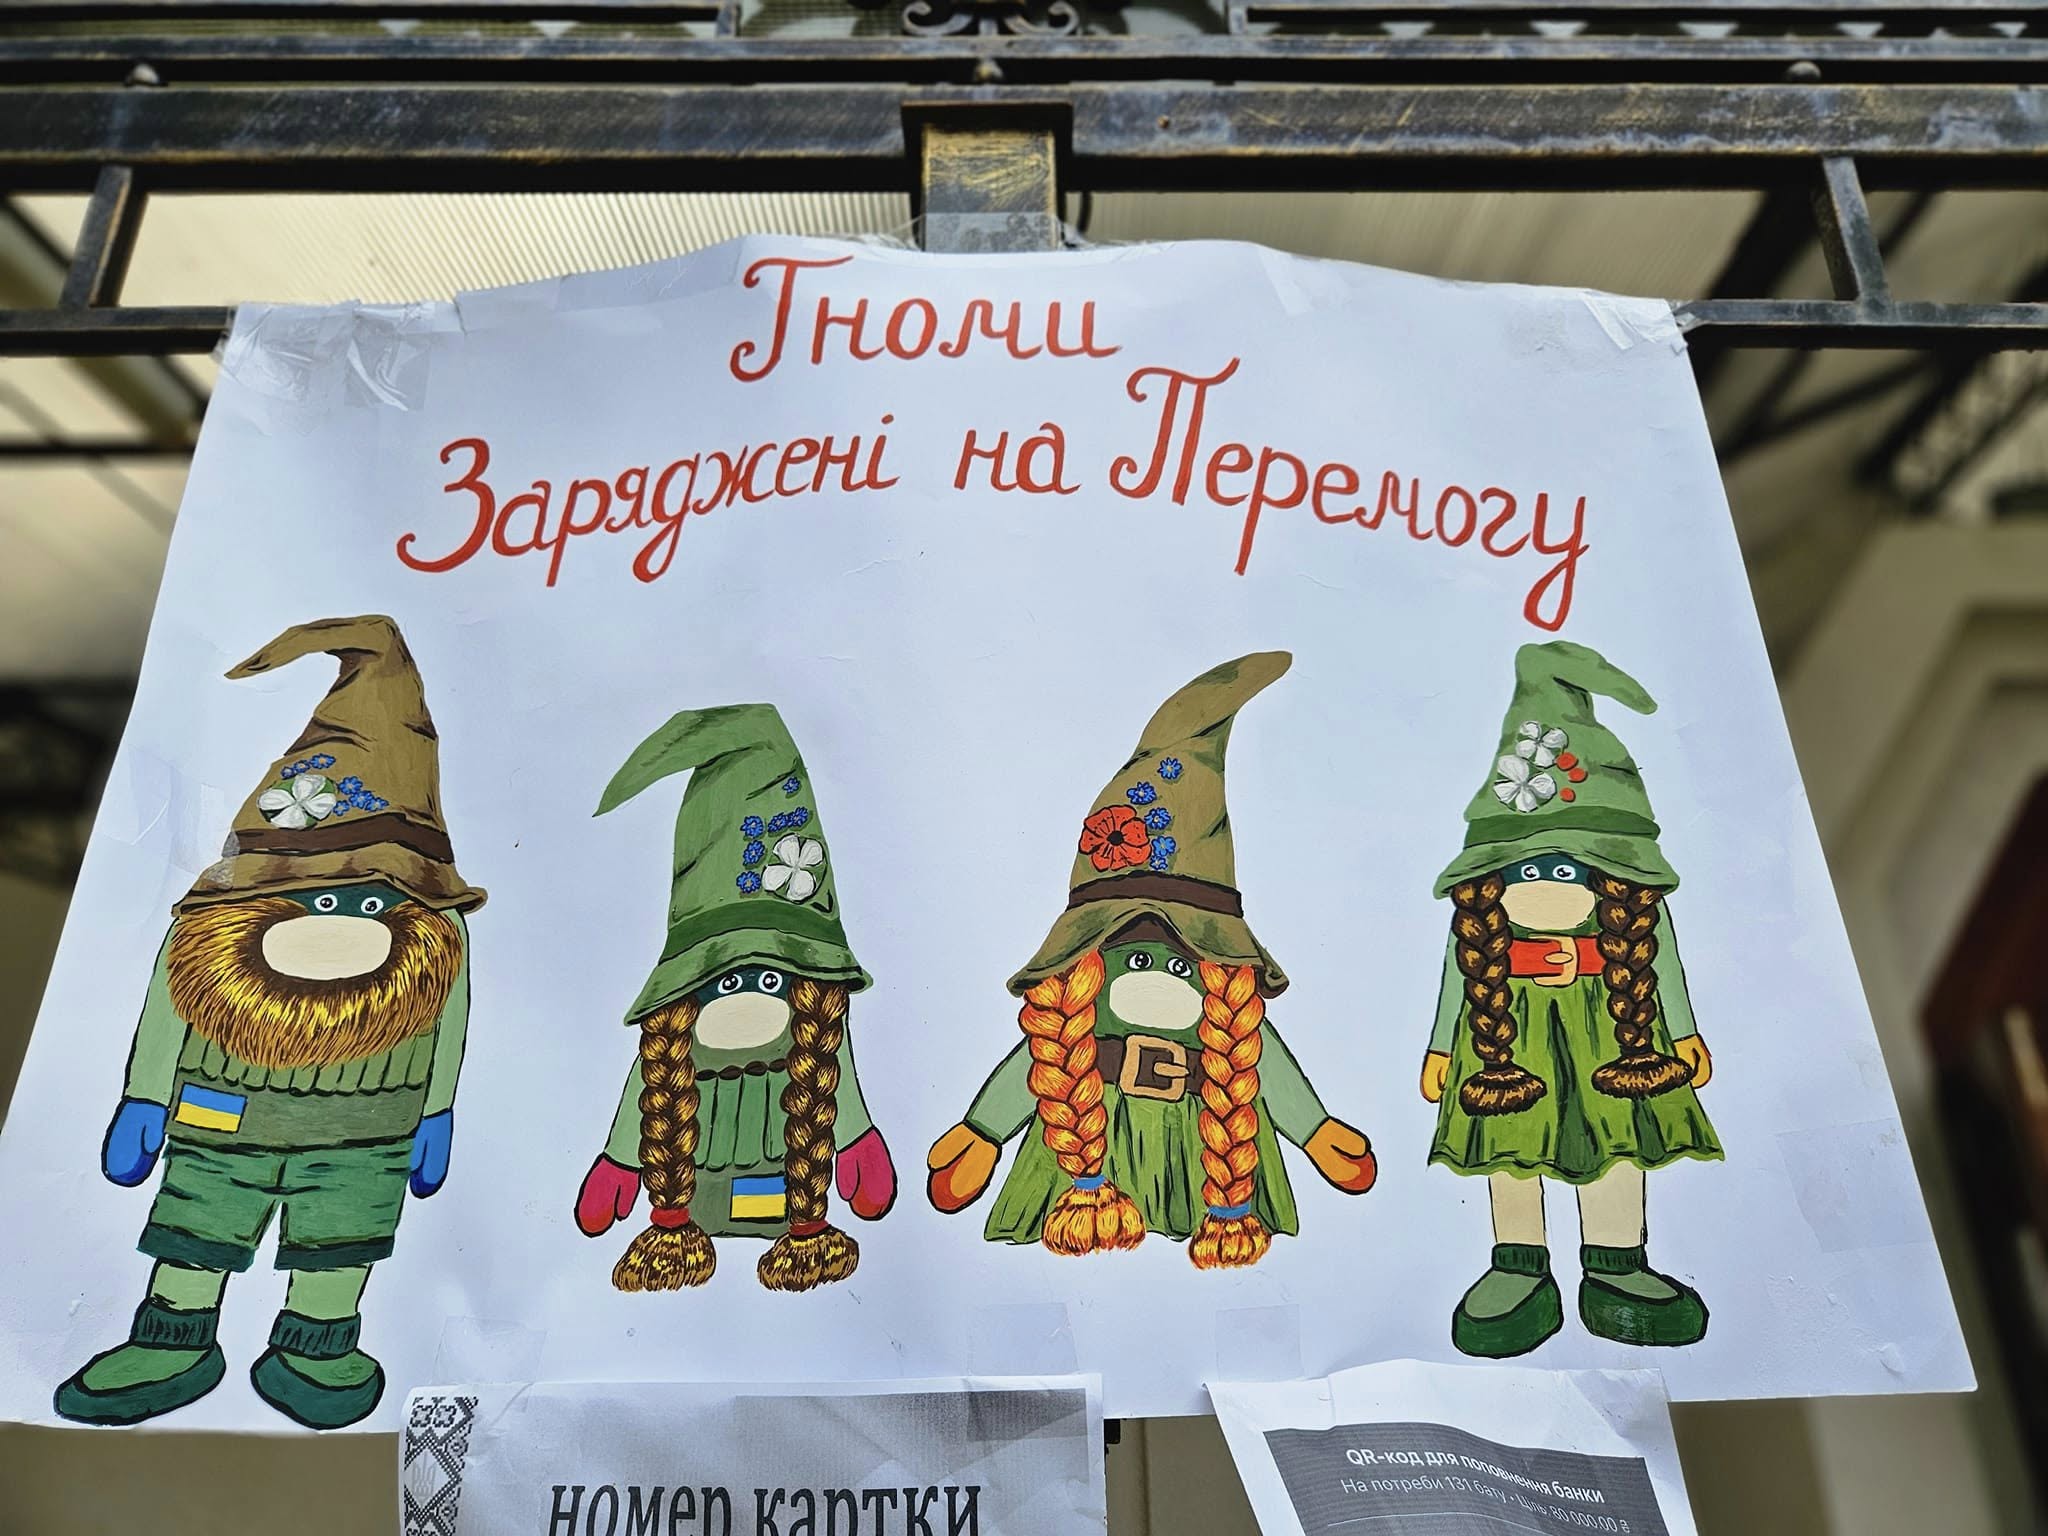 Гноми
Заряджені на Перемогу
номер картки
QR-код для поповнення банки
На потреби 131 бату • Ціль: 80 000.00 ₴